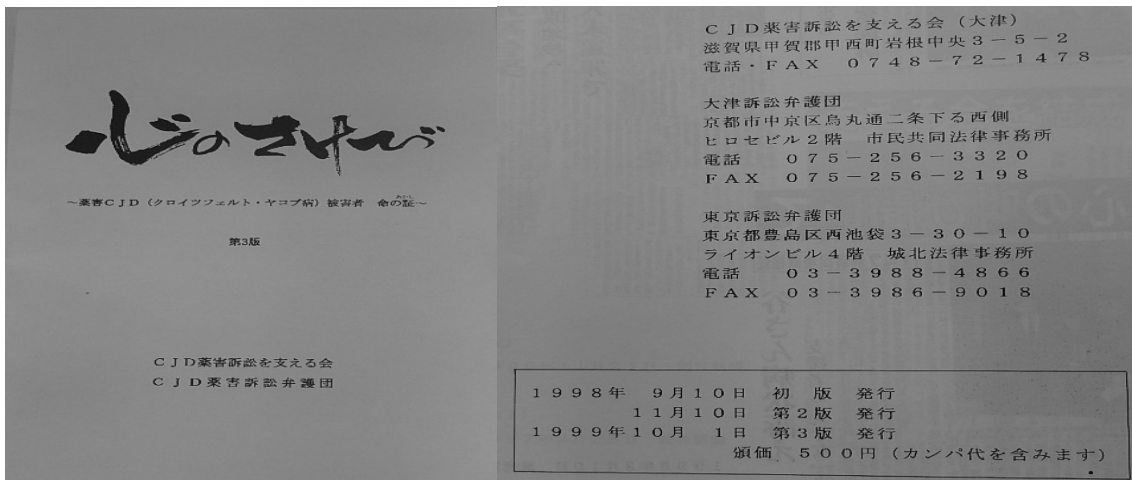 心のさけび
～薬害CJD（クロイツフェルト・ヤコブ病）被害者　命の証～
あかし
第3版
CJD薬害訴訟を支える会
CJD薬害訴訟弁護団
CJD薬害訴訟を支える会（大津）
滋賀県甲賀郡甲西町岩根中央3－5－2
電話・FAX　0748－72－1478
大津訴訟弁護団
京都市中京区烏丸通二条下る西側
ヒロセビル2階　市民共同法律事務所
電話　075－256－3320
FAX　075－256－2198
東京訴訟弁護団
東京都豊島区西池袋3－30－10
ライオンビル4階　城北法律事務所
電話　03－3988－4866
FAX　03－3986－9018
1998年　9月10日　初　版　発行
11月10日　第2版　発行
1999年10月　1日　第3版　発行
頒価　500円（カンパ代を含みます）